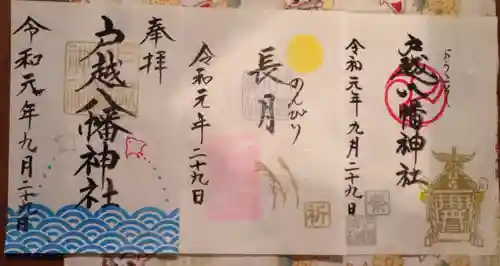 戸越八幡神社
令和元年九月二十九日
奉拝
長月
のんびり
令和元年九月二十九日
祈
戸越八幡神社
令和元年九月二十九日